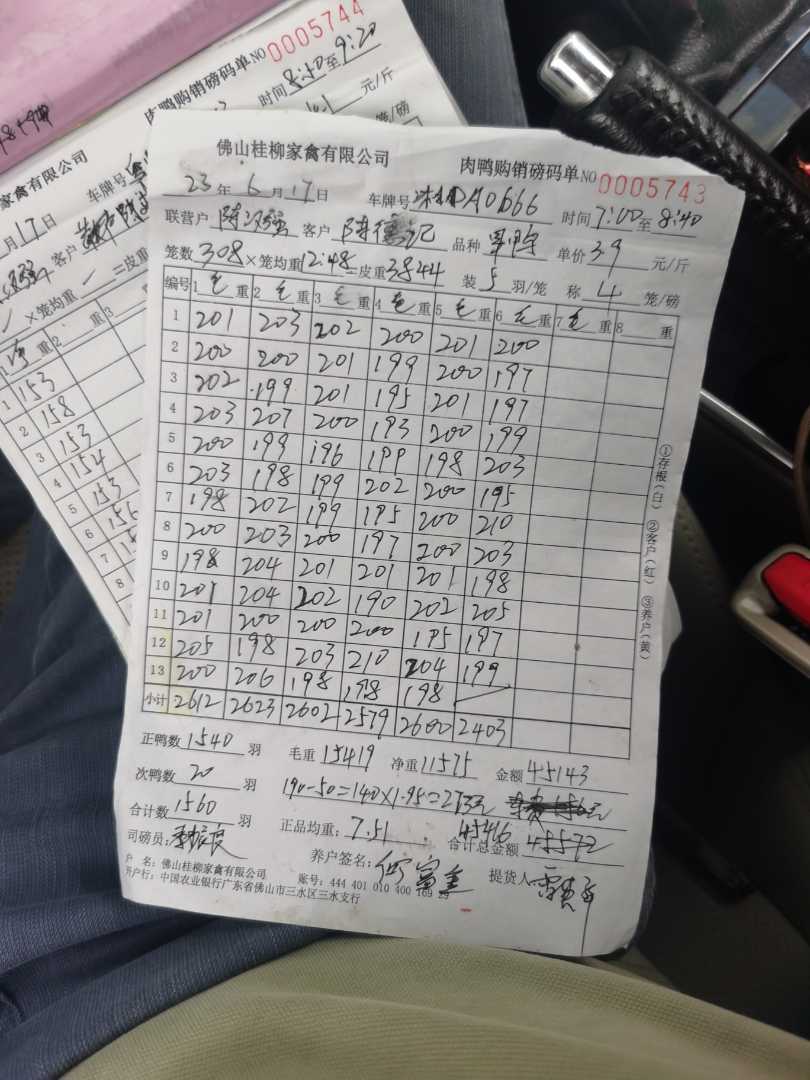 佛山桂柳家禽有限公司 肉鸭购销磅码单 NO 0005743
23年6月17日 车牌号 A0666 时间 7:00 至 8:40
联营户 客户 陈德记 品种 单价 3.9 元/斤
笼数 308 ×笼均重 12.48 =皮重 3844 装 5 羽/笼 称 4 笼/磅
编号 1 毛 重 2 毛 重 3 毛 重 4 毛 重 5 毛 重 6 毛 重 7 毛 重 8 重
1 201 203 202 200 201 200
2 200 200 201 199 200 197
3 202 199 201 195 201 197
4 203 207 200 193 200 199
5 200 199 196 199 198 203
6 203 198 199 202 200 195
7 198 202 199 195 200 210
8 200 203 200 197 200 203
9 198 204 201 201 201 198
10 201 204 202 190 202 205
11 201 200 200 200 195 197
12 205 198 203 210 204 199
13 200 206 198 198 198
小计 2612 2623 2602 2579 2600 2403
①存根(白) ②客户(红) ③养户(黄)
正鸭数 1540 羽 毛重 15419 净重 11575 金额 45143
次鸭数 20 羽 190-50=140×1.95=273元
合计数 1560 羽 正品均重: 7.51 45416 合计总金额 45572
司磅员: 养户签名: 提货人
户 名: 佛山桂柳家禽有限公司 账号: 444 401 010 400 169 29
开户行: 中国农业银行广东省佛山市三水区三水支行
家禽有限公司 肉鸭购销磅码单 NO 0005744
月 17 日 车牌号 时间 8:40 至 9:20
客户 元/斤
×笼均重 =皮重 笼/磅
重 2 重 3
1 153
2 158
3 153
4 154
5 153
6
7
8